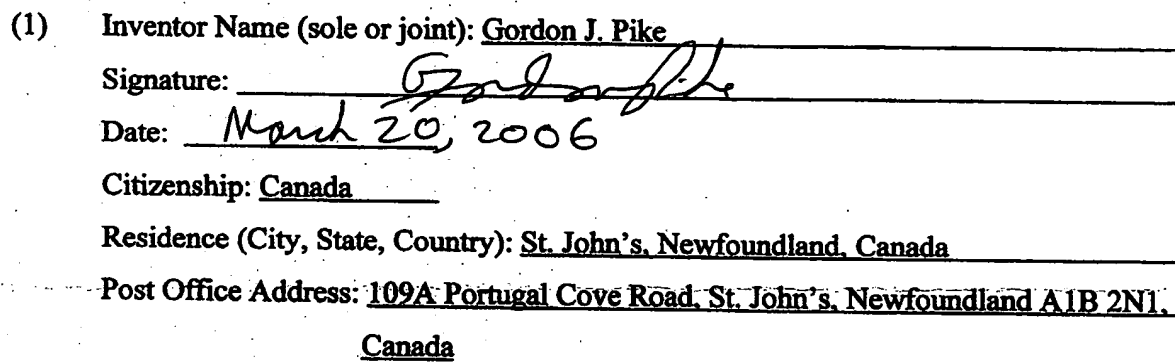 (1) Inventor Name (sole or joint): Gordon J. Pike
Signature: Gordon Pike
Date: March 20, 2006
Citizenship: Canada
Residence (City, State, Country): St. John's, Newfoundland, Canada
Post Office Address: 109A Portugal Cove Road, St. John's, Newfoundland A1B 2N1,
Canada